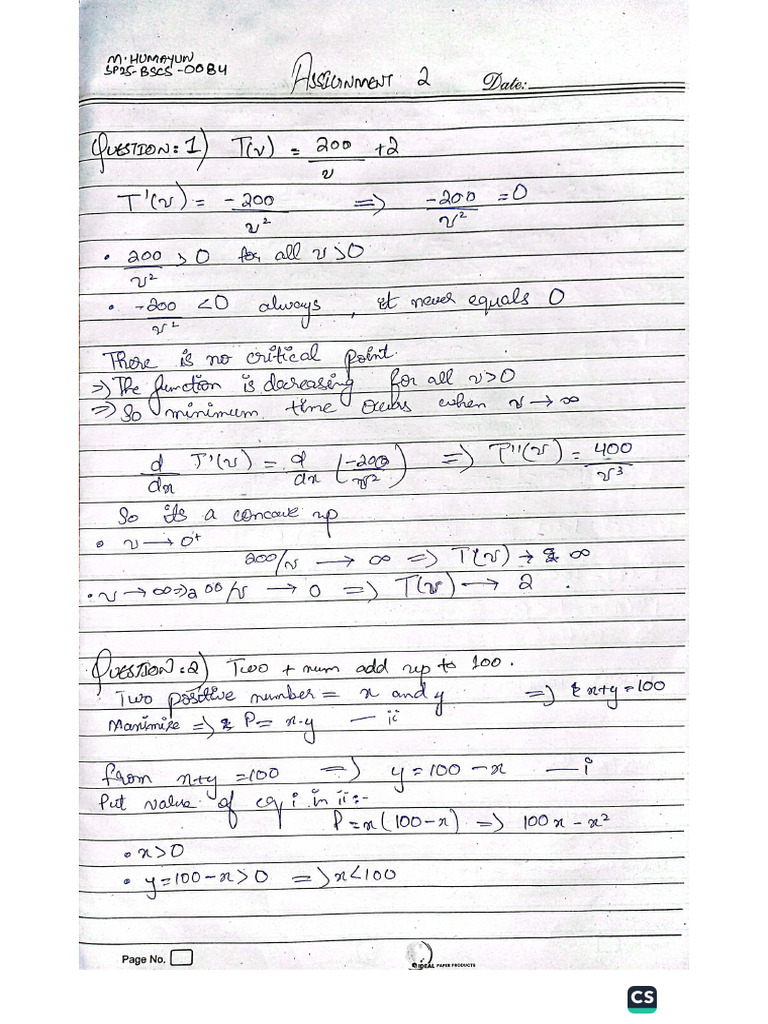 M. HUMAYUN
SP25-BSCS-0084
ASSIGNMENT 2
Date:
QUESTION: 1) T(v) = 200/v + 2
T'(v) = -200/v² => -200/v² = 0
• 200/v² > 0 for all v > 0
• -200/v² < 0 always, it never equals 0
There is no critical point.
=> The function is decreasing for all v > 0
=> So minimum time occurs when v → ∞
d/dx T'(v) = d/dx (-200/v²) => T''(v) = 400/v³
So its a concave up
• v → 0⁺
200/v → ∞ => T(v) → ∞
• v → ∞ => 200/v → 0 => T(v) → 2.
QUESTION: 2) Two + num add up to 100.
Two positive number = x and y => x+y=100
Maximize => P = x·y — ii
from x+y=100 => y=100-x — i
Put value of eq i in ii:-
P=x(100-x) => 100x-x²
• x>0
• y=100-x>0 => x<100
Page No.
IDEAL PAPER PRODUCTS
CS